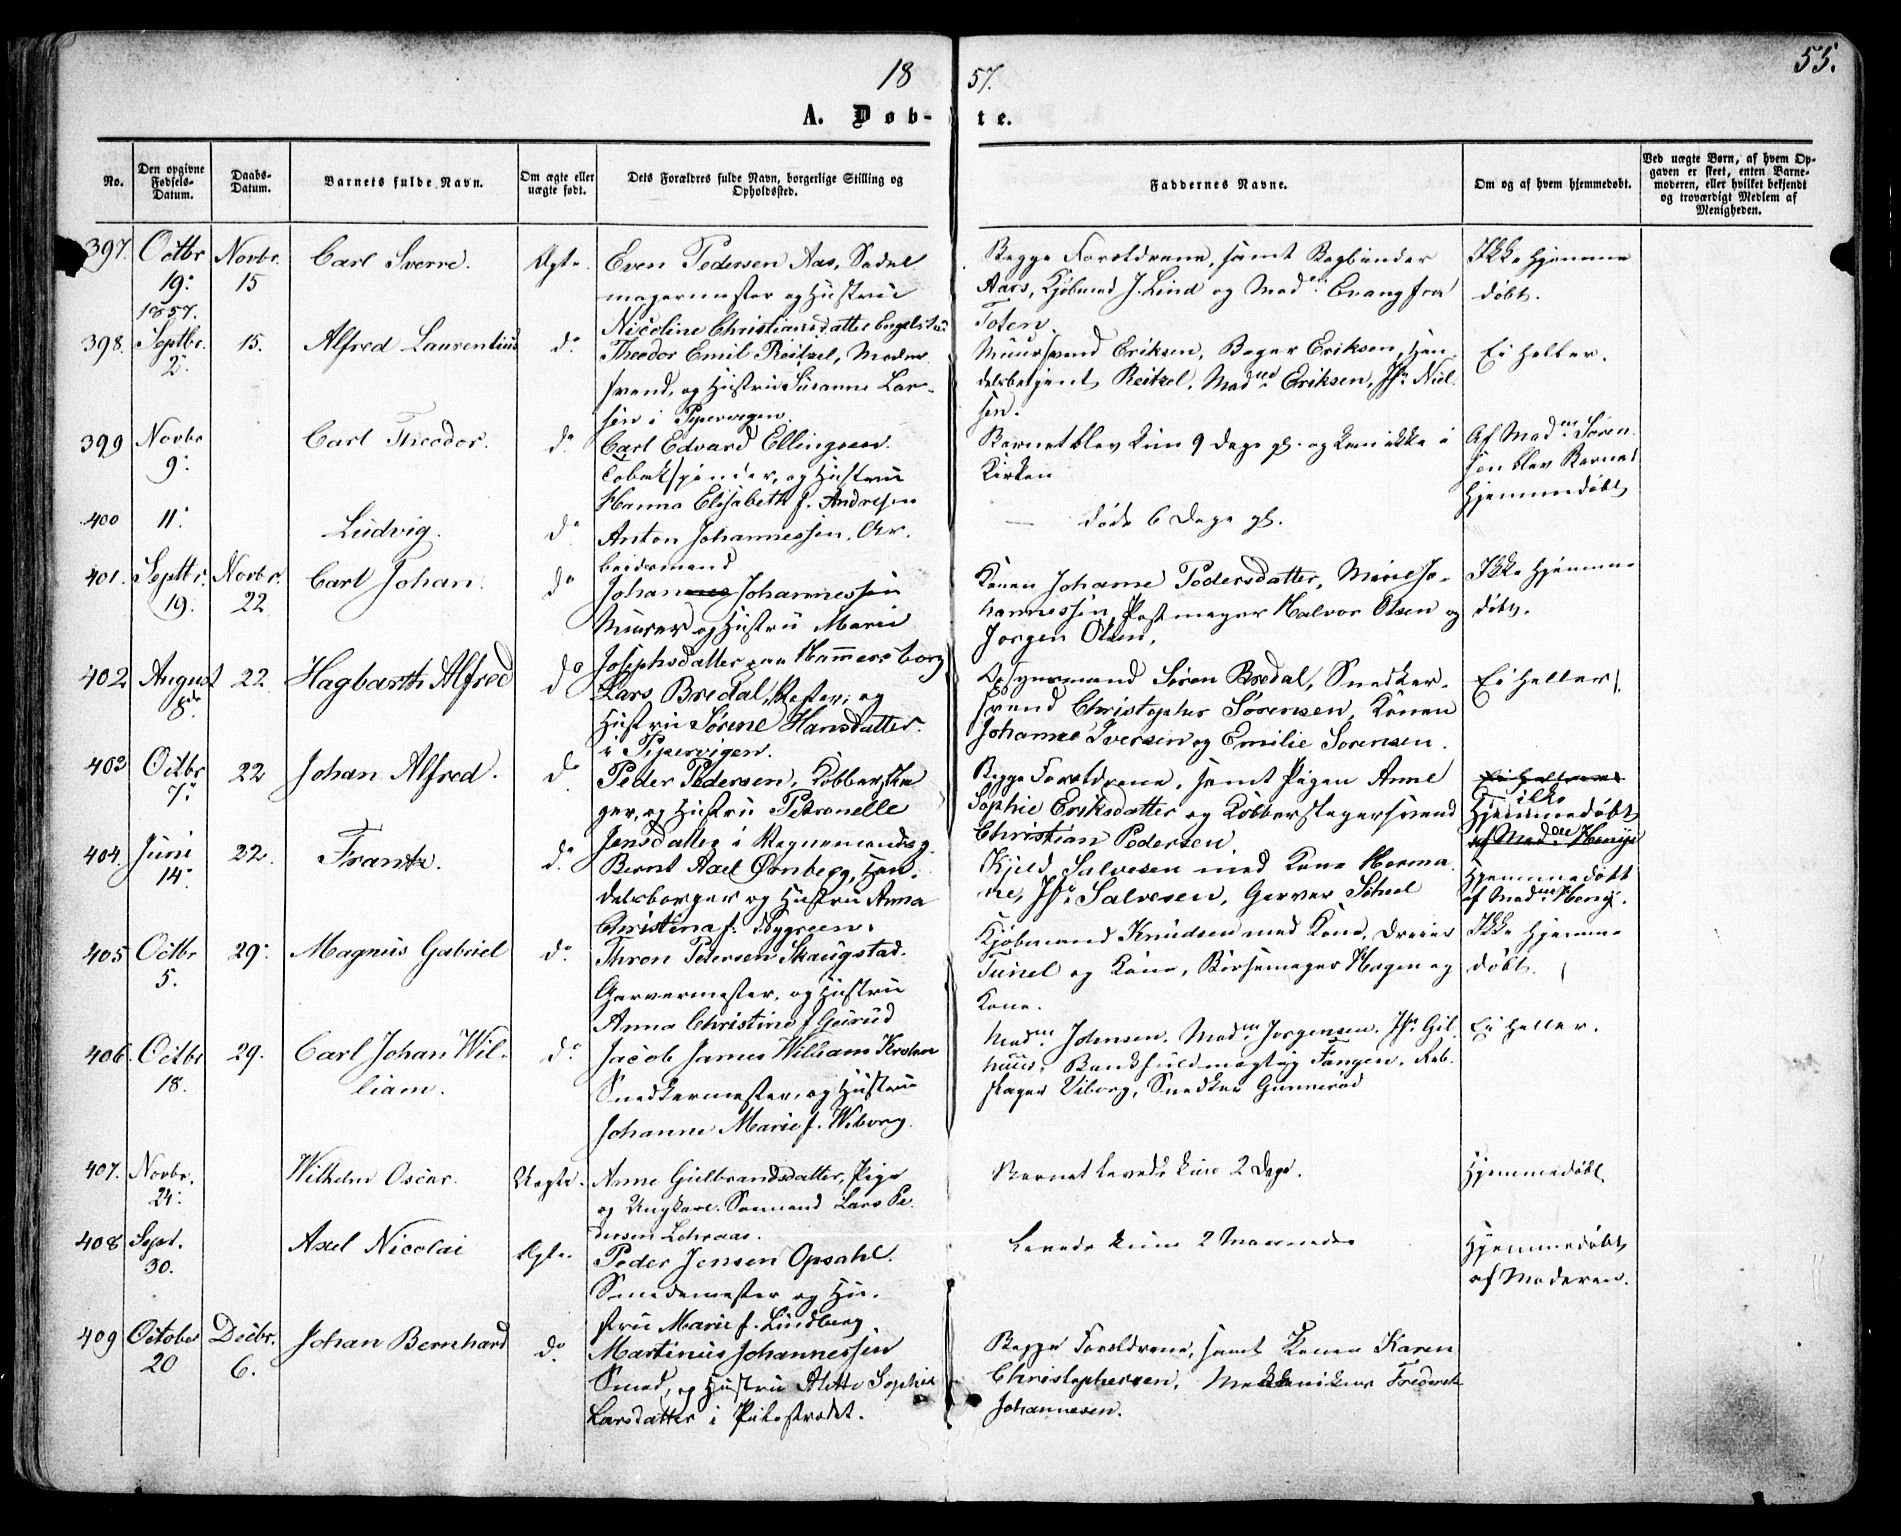 18 57.
55.
A. Døb- te.
No.
Den opgivne Fødsels-Datum.
Daabs-Datum.
Barnets fulde Navn.
Om ægte eller uægte født.
Dets Forældres fulde Navn, borgerlige Stilling og Opholdssted.
Faddernes Navne.
Om og af hvem hjemmedøbt.
Ved uægte Børn, af hvem Opgaven er skeet, enten Barnemoderen, eller hvilket bekjendt og troværdigt Medlem af Menigheden.
397. Octbr 19: 1857. Novbr. 15 Carl Sverre. Ægte.
Even Pedersen Aas, Sadel
magermester og Hustrue
Nicoline Christiansdatter
Begge Forældrene, samt Bogbinder
Aars, Kjøbmd J. Lind og Mad. Evang fra
Toten.
Ikke hjemme
døbt.
398. Septbr. 2: 15. Alfred Laurentius do
Theodor Emil Reitzel, Maler
svend, og Hustru Susanne Lar-
sen i Pipervigen
Muursvend Eriksen, Bager Eriksen, Han-
delsbetjent Reitzel, Mad. Eriksen, Jfr. Niel-
sen.
Ei heller.
399 Novbr 9: Carl Theodor. do
Carl Edvard Ellingsen
Tobakspinder, og Hustrue
Hanna Elisabeth f. Andresen
Barnet blev kun 9 Dage gl. og kom ikke i
Kirken
Af Mad. Søren-
sen blev Barnet
hjemmedøbt
400 11: Ludvig. do
Anton Johannessen, Ar-
beidsmand
— døde 6 Dage gl.
401. Septbr. 19. Novbr. 22 Carl Johan. do
Johannes Johannessen
Murer og Hustru Marie
Josephsdatter paa Hammersborg
Konen Johanne Pedersdatter, Mine Jo-
hannessen, Postmager Halvor Olsen og
Jørgen Olsen.
Ikke hjemme-
døbt.
402 August 8de 22 Hagbarth Alfred do
Lars Bredal, og
Hustru Sørene Hansdatter
i Pipervigen.
Opsynsmand Søren Bredal, Snedker-
svend Christopher Sørensen, Konen
Johanne Iversen og Emilie Sorensen.
Ei heller.
403 Octbr 7: 22 Johan Alfred. do
Peder Pedersen, Kobbersla
ger, og Hustru Petronelle
Jensdatter i
Begge Forældrene, samt Pigen Anne
Sophie Eriksdatter og Kobberslagersvend
Christian Pedersen
ikke
Hjemmedøbt
404. Juni 14: 22. Frantz. do.
Bernt Axel Ørnbegg, Han-
delsborger og Hustru Anna
Christina f. Nygreen.
Kjeld Salvesen med Kone Herma-
ne, Jfr. Salvesen, Garver Scheel
Hjemmedøbt
af Mad.
405 Octbr 5. 29: Magnus Gabriel do.
Thron Petersen Skaugstad.
Garvermester, og Hustru
Anna Christine f.
Kjøbmand Knudsen med Kone, Dreier
og Kone, Børsemager Hagen og
Kone.
Ikke hjemme
døbt.
406. Octbr 18. 29. Carl Johan Wil-
liam. do
Jacob Janus William Krohn
Snedkermester, og Hustru
Johanne Marie f. Wiborg.
Mad. Johnsen, Mad. Jorgensen, Jfr. Gil-
huus, Bankfuldmægtig Fangen, Reb-
slager Viborg, Snedker Gunnerød
Ei heller.
407. Novbr. 24: Wilhelm Oscar. Uægte.
Anne Gulbrandsdatter, Pige
og Ungkarl, Sømand Lars Pe-
dersen
Barnet levede kun 2 Dage.
Hjemmedøbt
408 Sept. 30. Axel Nicolai Ægte.
Peder Jensen Opsahl.
Smedemester og Hu-
stru Marie f. Lindberg.
Levede kun 2 Maaneder
Hjemmedøbt
af Moderen.
409 October 20 Decbr. 6. Johan Bernhard do.
Martinus Johannessen
Smed, og Hustru Alette Sophie
Larsdatter i Pilestrædet.
Begge Forældrene, samt Konen Karen
Christophersen, Mekanikus Frederik
Johannesen.